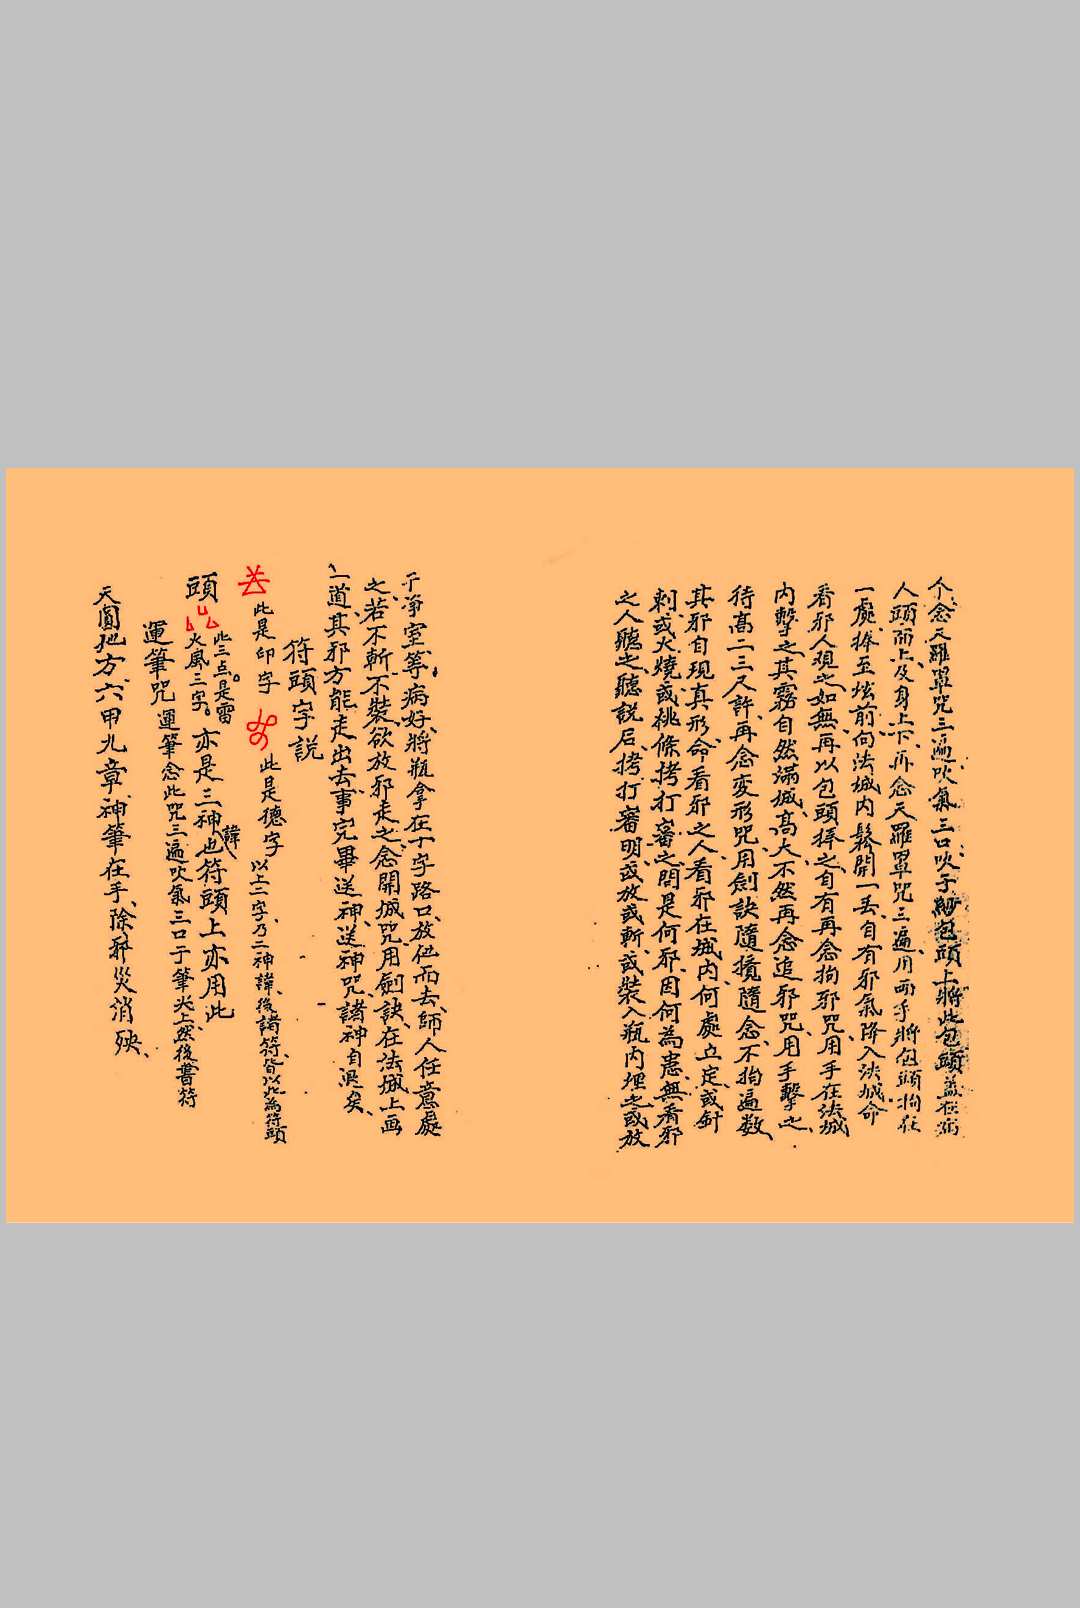 个念天羅罩咒三遍吹氣三口吹于紗包頭上將此包頭蓋在病
人頭面上及身上下再念天羅罩咒三遍用兩手將包頭拘在
一處捧至坛前向法城内鬆開一丢自有邪氣降入法城命
看邪人視之如無再以包頭拝之自有再念拘邪咒用手在法城
内擊之其霧自然滿城高大不然再念追邪咒用手擊之
待高二三又許再念变形咒用劍訣隨攪隨念不拘遍数
其邪自現真形命看邪之人看邪在城内何處立定或針
刺或火燒或桃條拷打審之問是何邪因何為患無看邪
之人聽之聽説后拷打審明或放或斬或裝入瓶内埋之或放
于淨室等病好將瓶拿在十字路口放伍而去師人任意處
之若不斬不裝欲放邪走之念開城咒用劍訣在法城上画
一道其邪方能走出去事完畢送神送神咒諸神自退矣
符頭字説
此是印字 此是德字 以上二字乃二神諱後諸符皆以此為符頭
頭 此三点是雷火風三字。亦是三神諱也符頭上亦用此
運筆咒 運筆念此咒三遍吹氣三口于筆尖上然後書符
天圓地方六甲九章神筆在手除邪災消殃